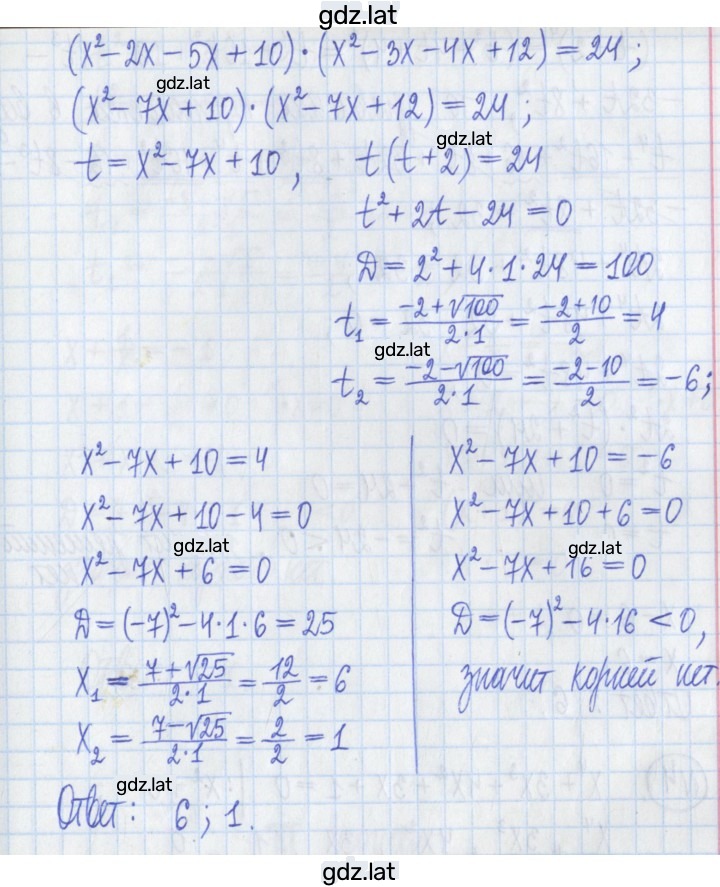 gdz.lat
(x² – 2x – 5x + 10) · (x² – 3x – 4x + 12) = 24 ;
gdz.lat
(x² – 7x + 10) · (x² – 7x + 12) = 24 ;
gdz.lat
t = x² – 7x + 10 , t(t + 2) = 24
t² + 2t – 24 = 0
Д = 2² + 4 · 1 · 24 = 100
t₁ = (–2 + √100)/(2 · 1) = (–2 + 10)/2 = 4
gdz.lat
t₂ = (–2 – √100)/(2 · 1) = (–2 – 10)/2 = –6;
x² – 7x + 10 = 4
x² – 7x + 10 – 4 = 0
gdz.lat
x² – 7x + 6 = 0
Д = (–7)² – 4 · 1 · 6 = 25
x₁ = (7 + √25)/(2 · 1) = 12/2 = 6
x₂ = (7 – √25)/(2 · 1) = 2/2 = 1
x² – 7x + 10 = –6
x² – 7x + 10 + 6 = 0
gdz.lat
x² – 7x + 16 = 0
Д = (–7)² – 4 · 16 < 0,
значит корней нет.
gdz.lat
Ответ: 6 ; 1.
gdz.lat